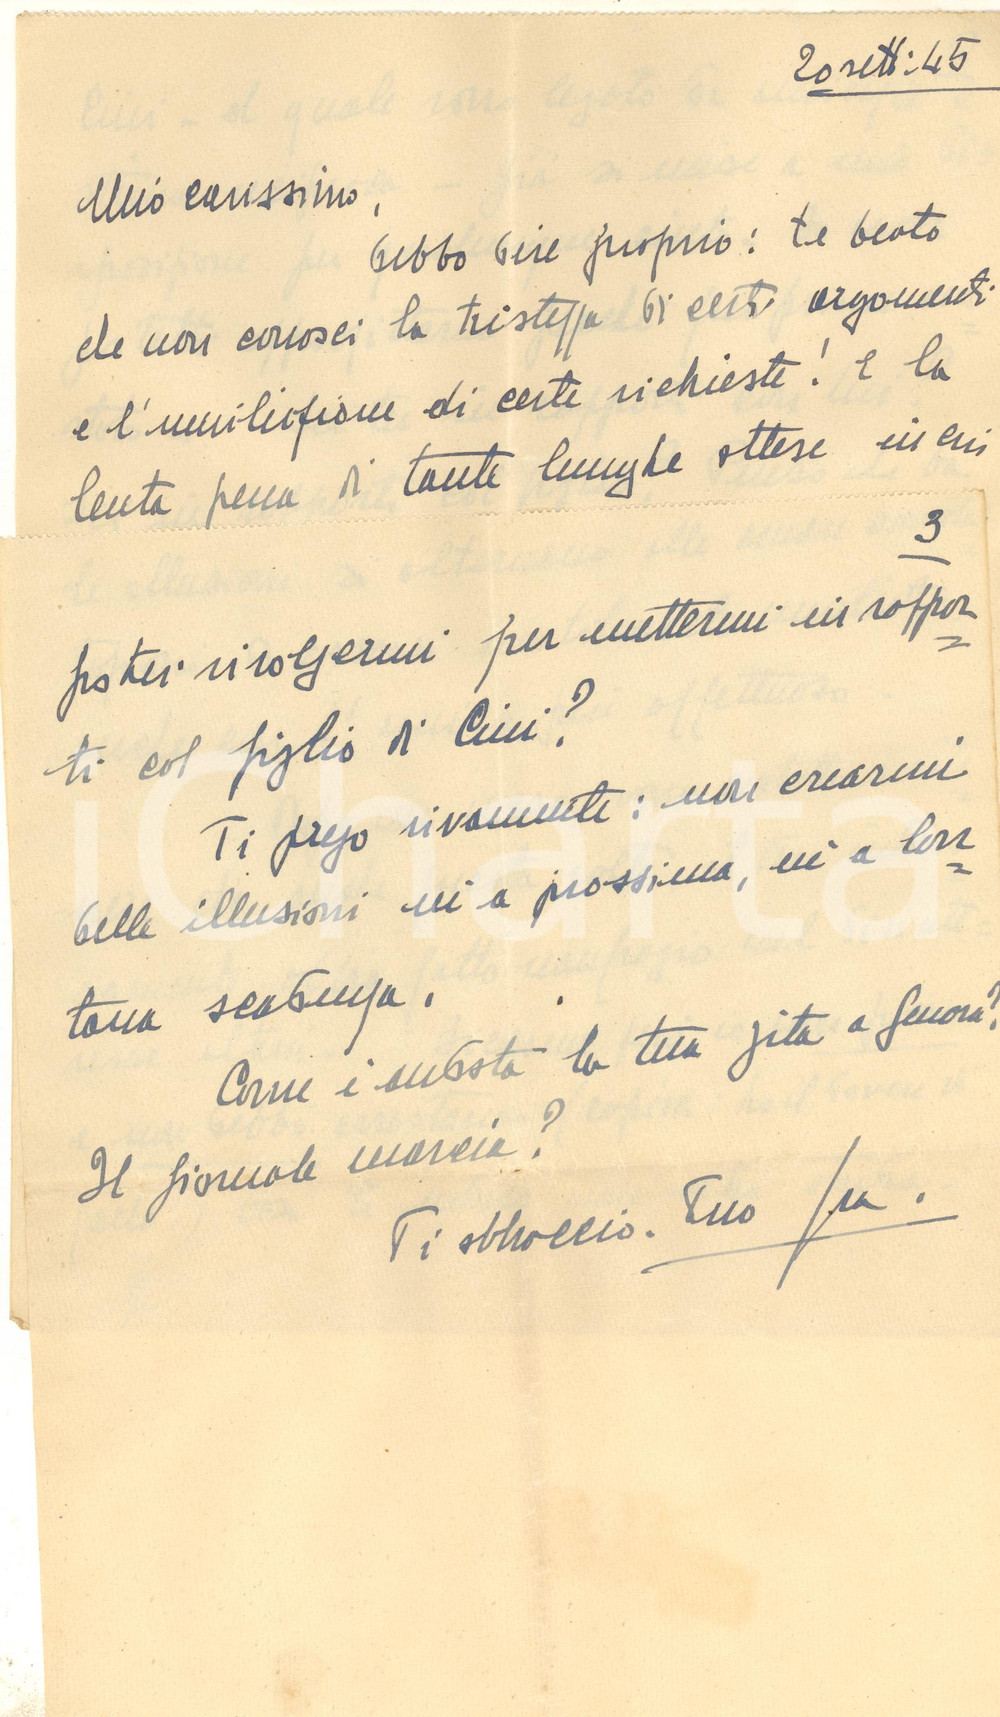 20 sett: 45
Mio carissimo,
debbo dire proprio: te beato
che non conosci la tristezza di certi argomenti
e l'umiliazione di certe richieste! E la
lenta pena di tante lunghe attese in cui
3
potrei rivolgermi per mettermi in rappor=
ti col figlio di Cini?
Ti prego vivamente: non crearmi
delle illusioni né a prossima, né a lon=
tana scadenza.
Come è andata la tua gita a Genova?
Il giornale marcia?
Ti abbraccio. Tuo Fra.
iCharta